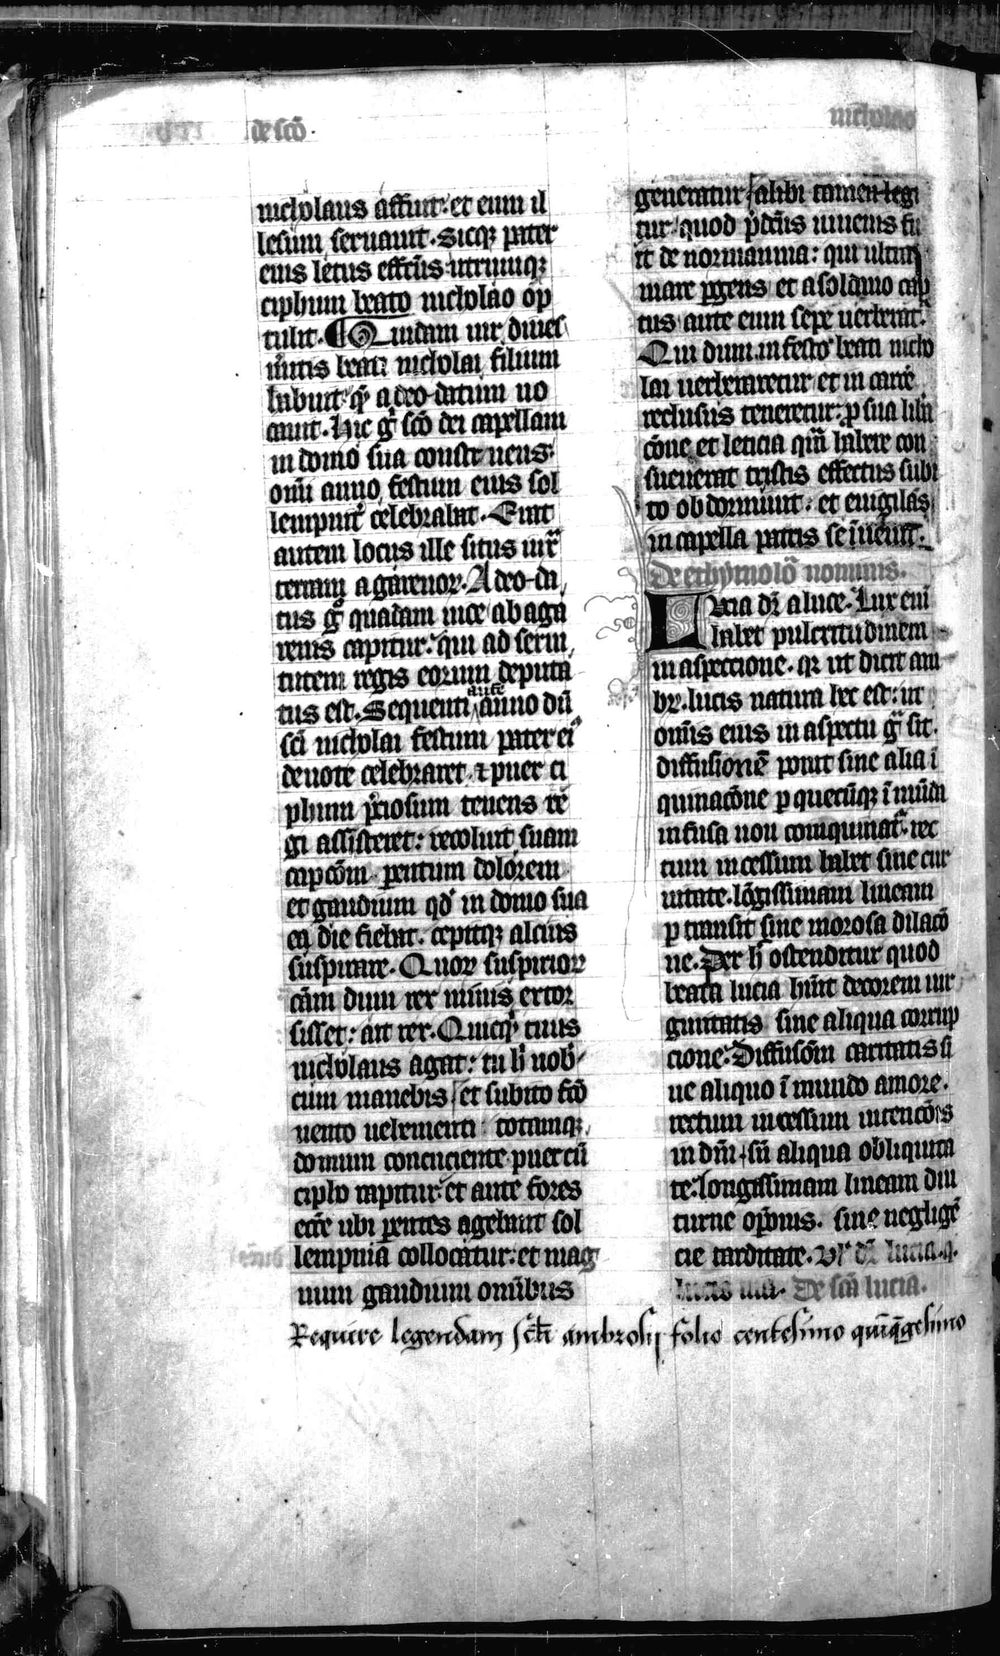 de scō
nicholao
nicholaus affuit· et eum il
lesum seruauit· Sicq; pater
eius letus effcūs· utrumq;
ciphum beato nicholao op
tulit· ¶ Quidam uir diues
nicholai filium
habuit adeo datum uo
cauit· Hic gͦ scō dei capellam
in domo sua construens·
omī anno festum eius sol
lempnit̉ celebrabat· Erat
autem locus ille situs iux̄
terram agarenor̄· Adeo da
tus gͦ quadam uice ab aga
renis capitur· qui ad serui
tutem regis eorum deputa
tus est· Sequenti autē anno dū
scī nicholai festum pater eiꝰ
deuote celebraret ⁊ puer ci
phum p̄ciosum tenens re
gi assisteret: recoluit suam
capcōm pentum dolorem
et gaudium qd̓ in domo sua
ea die fiebat· cepitq; alcius
suspirare· Quor̄ suspirior̄
cām dum rex minis extor
sisset: ait rex· Quicq̓ tuus
nicholaus agat: tu h̓ nob̓
cum manebis et subito fcō
uento uehementi totamq;
domum concuciente puer cū
cipho rapitur· et ante fores
ecc̄e ubi pentes agebant sol
lempnia collocatur: et mag
num gaudium omībus
generatur alibi tamen legi
tur quod p̄dcūs iuuenis fu
it de normannia: qui ultra
mare pgens et a soldano cap
tus ante eum sepe uerberat̉·
Qui dum in festo beati nicho
lai uerberaretur et in carc̄e
reclusus teneretur: p sua libā
cōne et leticia quā habere con
sueuerat tristis effectus subi
to obdormiuit: et euigilās
in capella patris se īuenit·
De ethymolō nominis·
Lucia dr̄ a luce· Lux eni
habet pulcritudinem
in aspectione· qr ut dicit am
br̄· lucis natura hec est: ut
omīs eius in aspectu gr̄a sit·
diffusionē sine alia ī
quinacōne p quecūq; īmūda
infusa non coinquinat̉· rec
tum incessum habet sine cur
uitate· lōgissimam lineam
ptransit sine morosa dilacō
ne· Per h̓ ostenditur quod
beata lucia decorem uir
ginitatis sine aliqua corrup
cione: Diffusiōm caritatis si
ne aliquo ī mundo amore·
rectum incessum intencōis
in dm̄ sn̄ aliqua obliquita
te: longissimam lineam diu
turne opīonis· sine negligē
cie tarditate· Ul̓ dr̄ lucia· q̓·
lucis uia· De scā lucia·
Require legendam scī ambrosij folio centesimo quīq̄gesimo